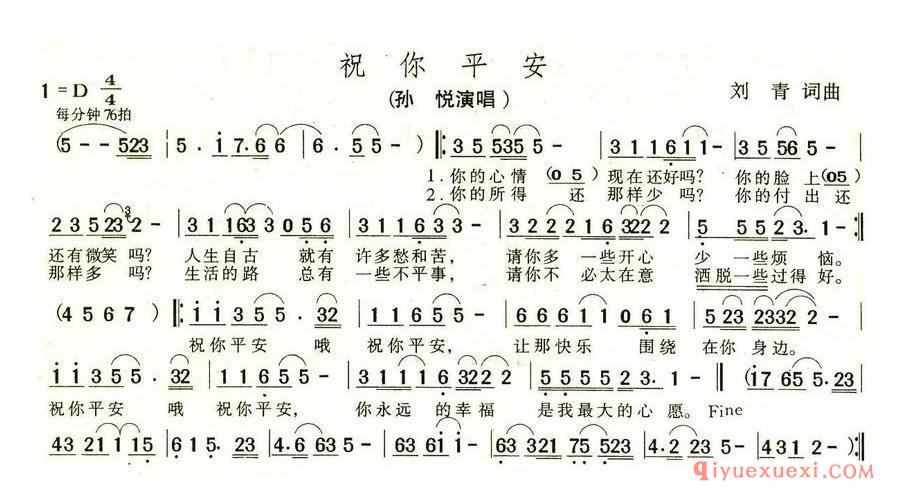 祝你平安
1=D 4/4
(孙 悦演唱)
刘 青 词曲
每分钟76拍
(5--523 | 5.i7.66 | 6.55-) |: 35535 5- | 311611- | 35565-
1.你的心情 (05) 现在还好吗? 你的脸上(05)
2.你的所得 还 那样少吗? 你的付出还
235232- | 311633056 | 3111633- | 322216322 | 5 5535 1- :|
还有微笑吗? 人生自古 就有 许多愁和苦, 请你多 一些开心 少 一些烦 恼。
那样多 吗? 生活的路 总有 一些不平事, 请你不 必太在意 洒脱一些过得好。
(4567) |: ii355.32 | 11655- | 66611061 | 523233 22-
祝你平安 哦 祝你平安, 让那快乐 围绕 在你 身边。
ii355.32 | 11655- | 31116322 | 5555523. | 1- (i7655.23
祝你平安 哦 祝你平安, 你永远 的幸福 是我最大的心 愿。Fine
4321115 | 615.23 | 4.6635- | 663ii- | 633217 5523 | 4.2235- | 2431- ) :|
qiyuexuexi.com